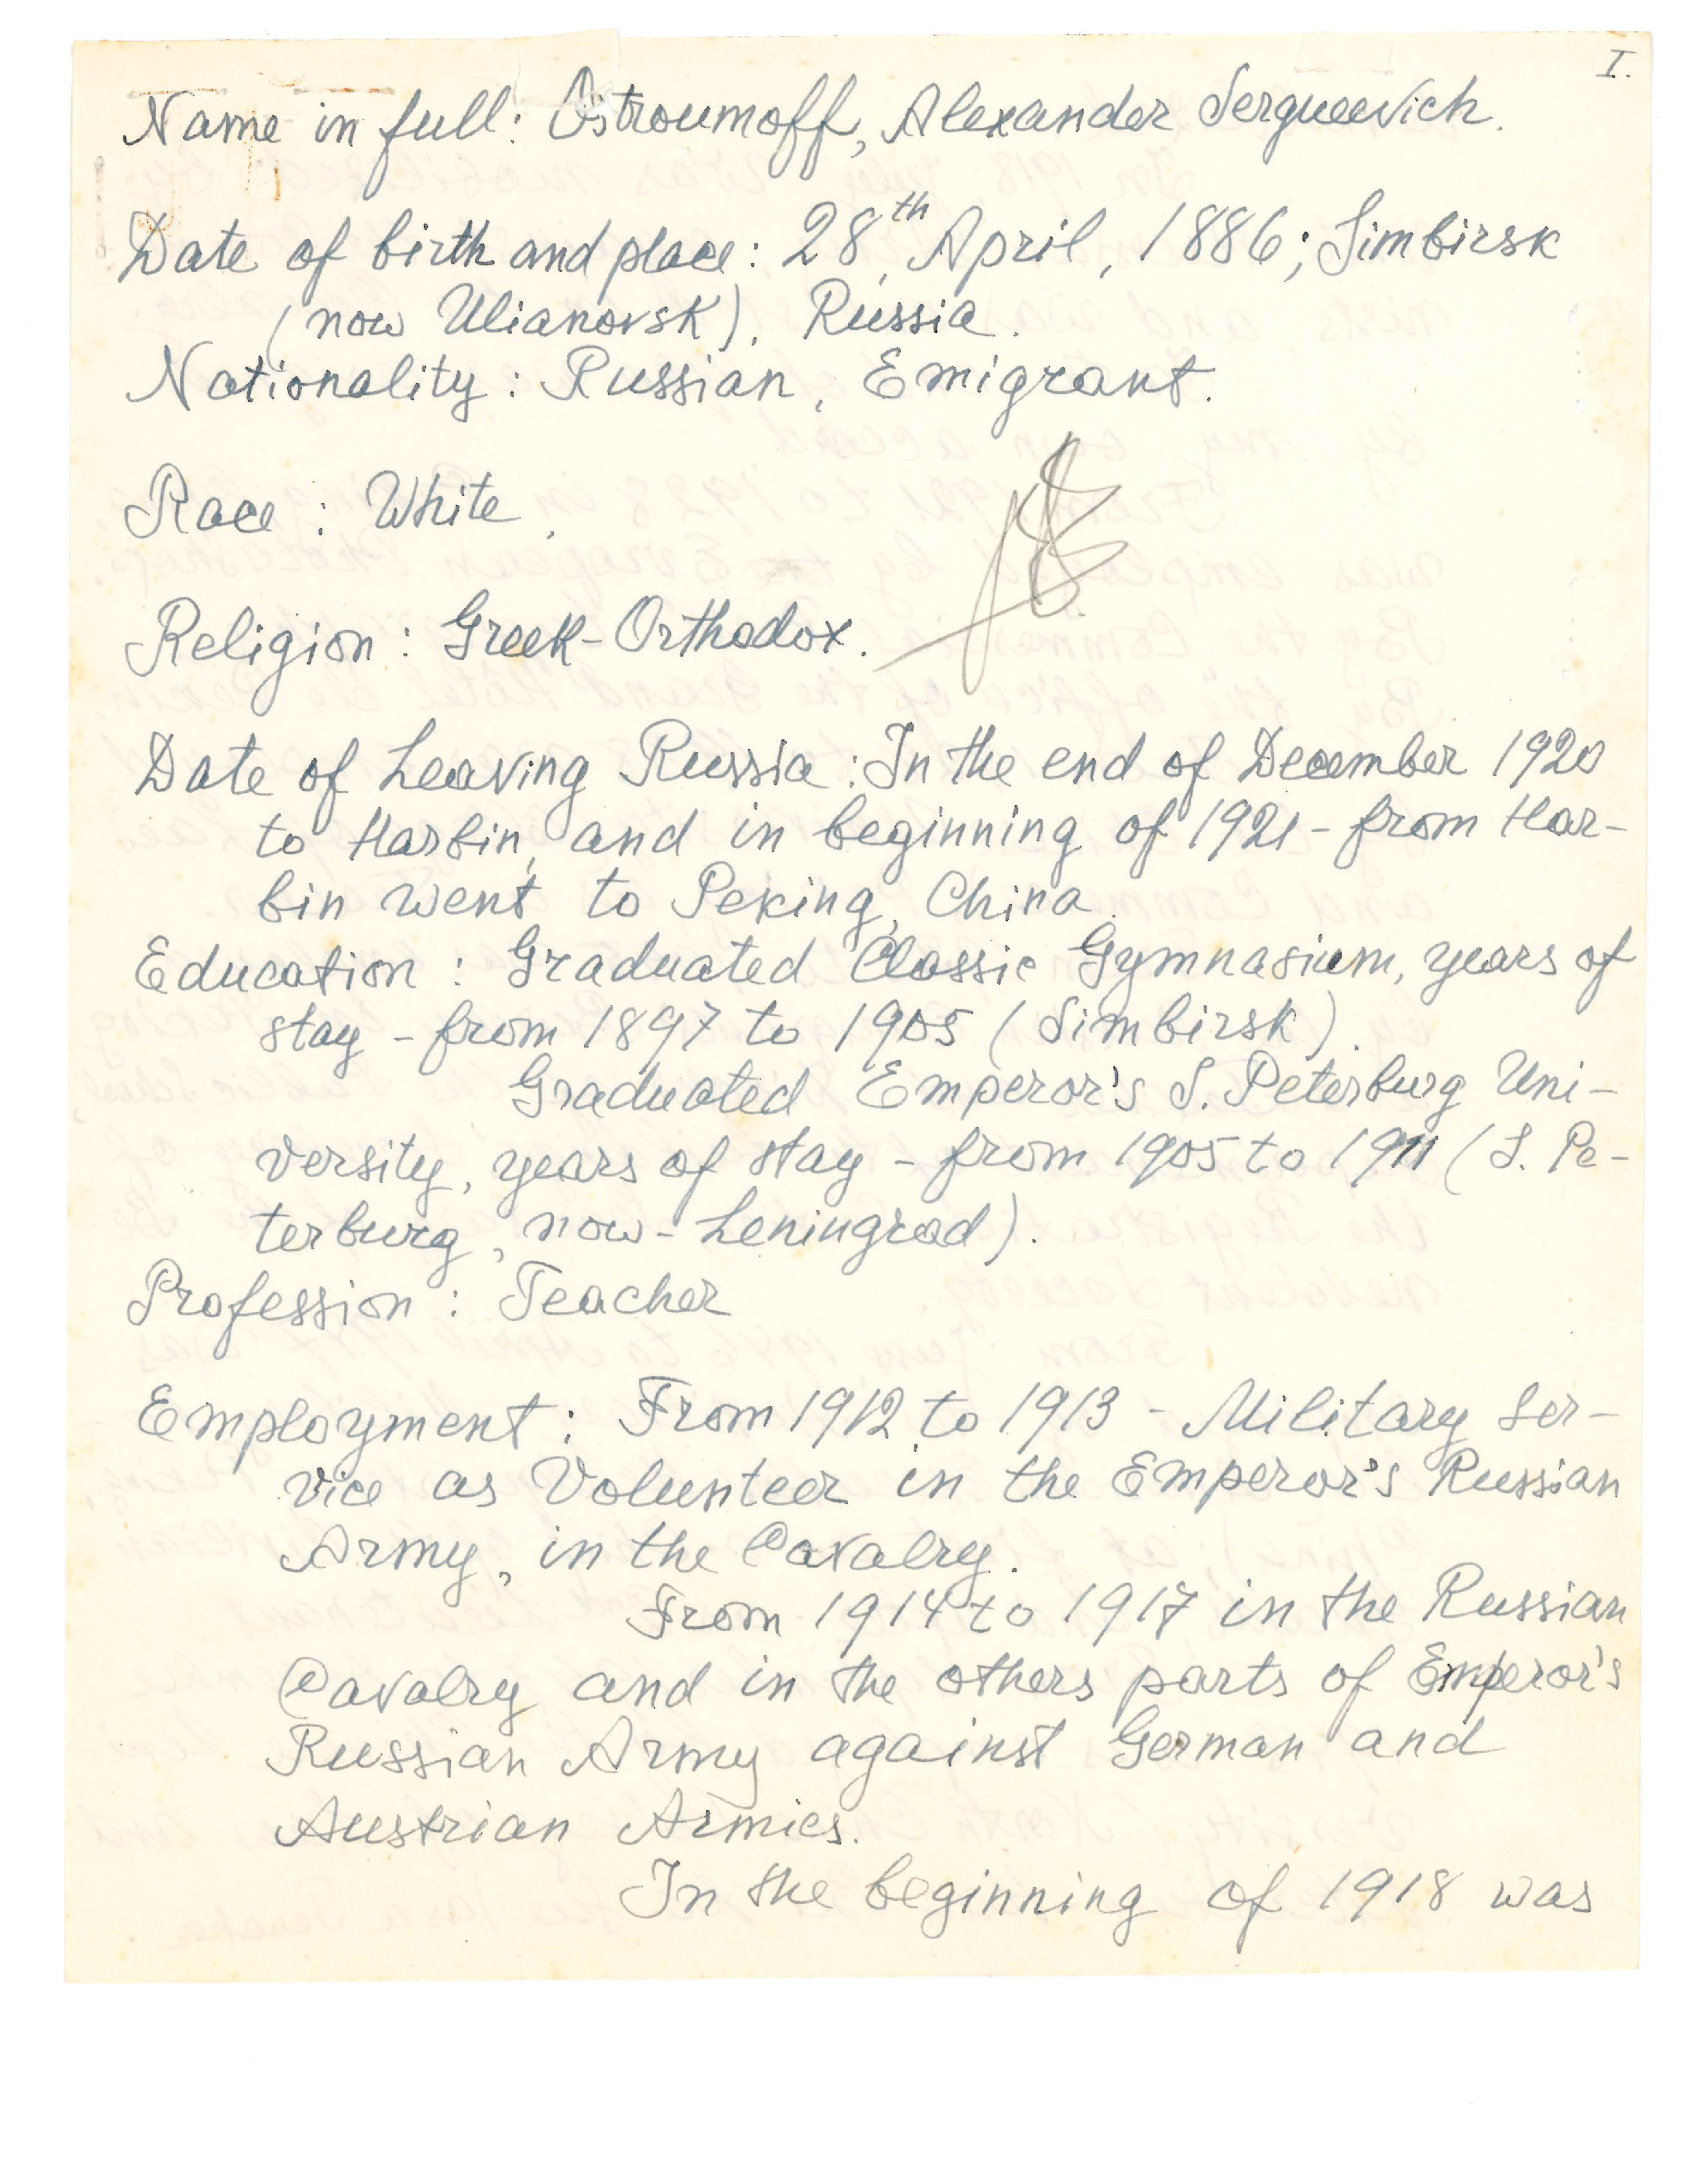 I.
Name in full: Ostroumoff, Alexander Sergueevich.
Date of birth and place: 28th, April, 1886; Simbirsk
(now Ulianovsk), Russia.
Nationality: Russian, Emigrant.
Race: White.
Religion: Greek-Orthodox.
Date of Leaving Russia: In the end of December 1920
to Harbin, and in beginning of 1921 - from Har-
bin went to Peking, China.
Education: Graduated Classic Gymnasium, years of
stay - from 1897 to 1905 (Simbirsk).
Graduated Emperor's S. Peterburg Uni-
versity, years of stay - from 1905 to 1911 (S. Pe-
terburg, now - Leningrad).
Profession: Teacher
Employment: From 1912 to 1913 - Military Ser-
vice as Volunteer in the Emperor's Russian
Army, in the Cavalry.
From 1914 to 1917 in the Russian
Cavalry and in the others parts of Emperor's
Russian Army against German and
Austrian Armies.
In the beginning of 1918 was